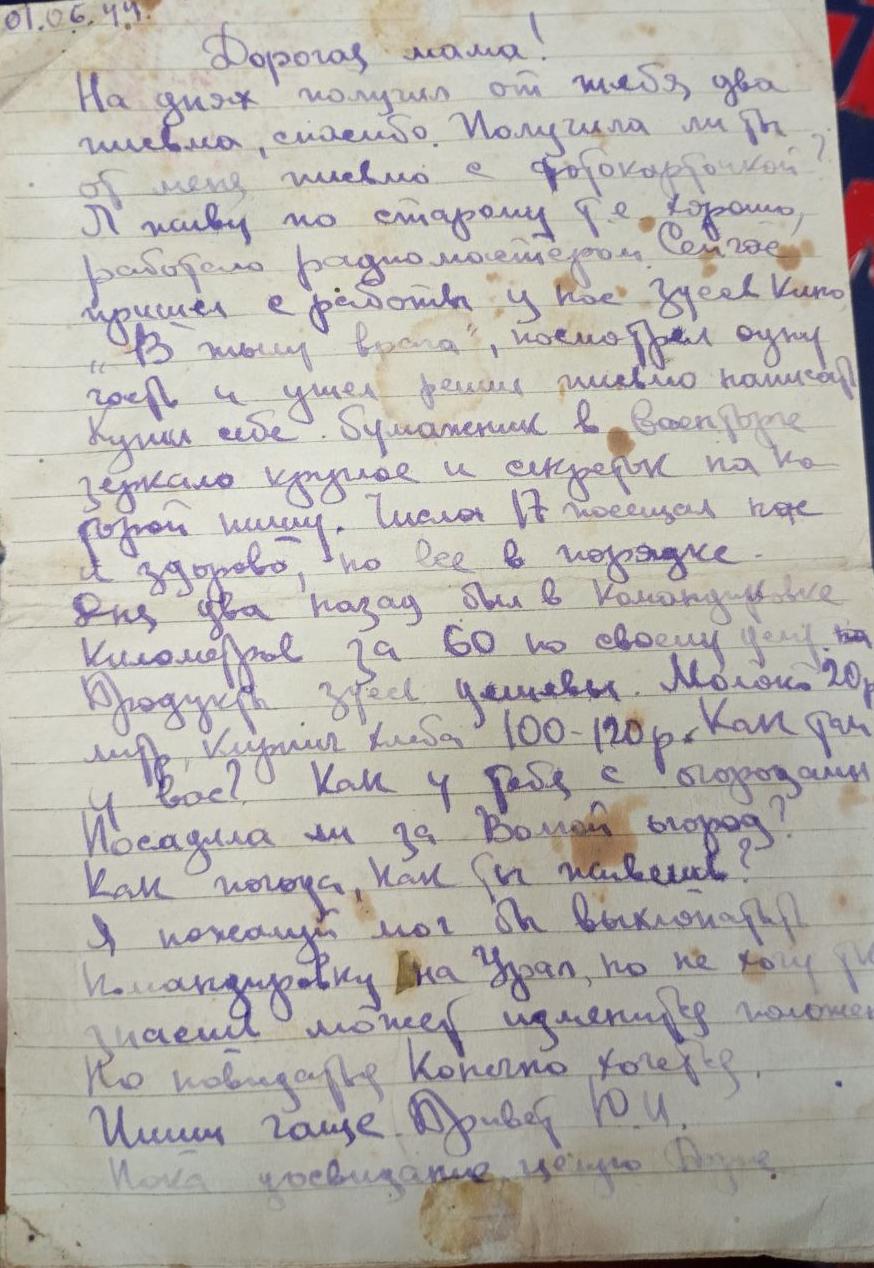 01.06.44.
Дорогая мама!
На днях получил от тебя два
письма, спасибо. Получила ли ты
от меня письмо с фотокарточкой?
Я живу по старому т.е. хорошо,
работаю радиомастером. Сейчас
пришел с работы у нас здесь кино
„В тылу врага", посмотрел одну
часть и ушел решил письмо написать
Купил себе бумажник в военторге
зеркало круглое и секретик на ко
торой пишу. Числа 17 посещал
и здорово, но все в порядке.
Дня два назад был в командировке
километров за 60 по своему делу
Продукты здесь дешевы. Молоко 20р
литр, Кирпич хлеба 100-120р. Как там
у вас? Как у тебя с огородами
Посадила ли за Волгой огород?
Как погода, как ты живешь?
Я пожалуй мог бы выхлопотать
командировку на Урал, но не хочу ты
знаешь может измениться положен
Но повидаться конечно хочется.
Пиши чаще. Привет Ю.И.
Пока досвидание, целую